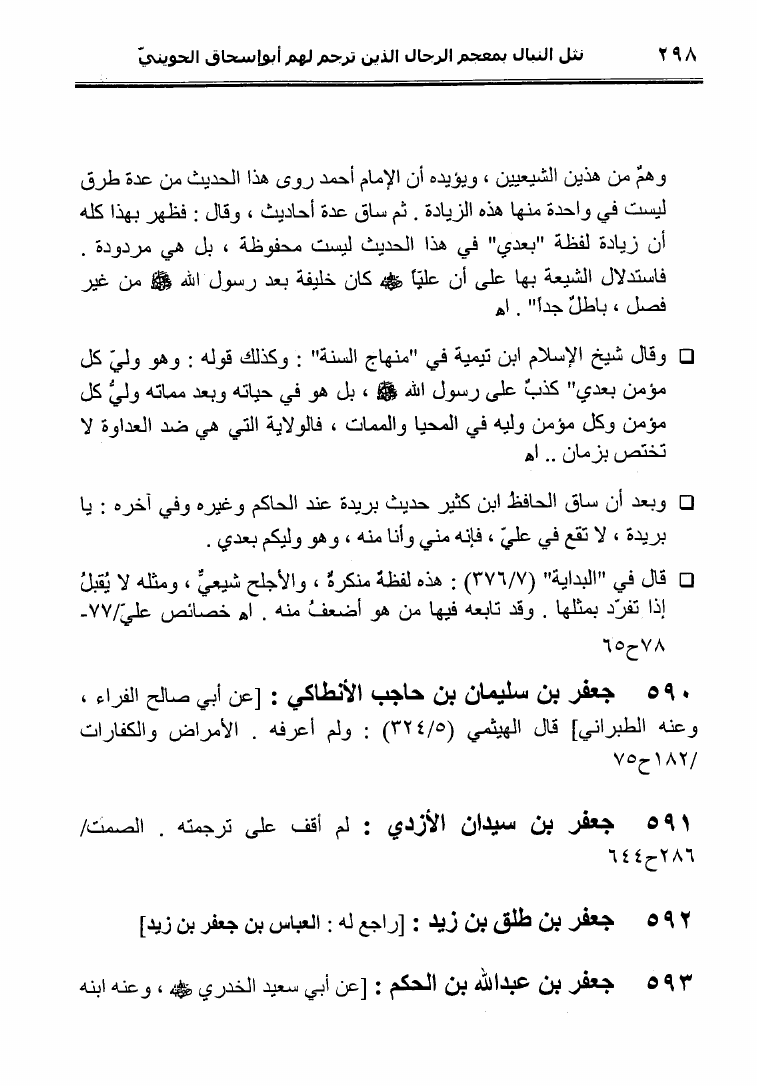 ٢٩٨ نثل النبال بمعجم الرجال الذين ترجم لهم أبوإسحاق الحوينيّ
وهمٌ من هذين الشيعيين ، ويؤيده أن الإمام أحمد روى هذا الحديث من عدة طرق
ليست في واحدة منها هذه الزيادة . ثم ساق عدة أحاديث ، وقال : فظهر بهذا كله
أن زيادة لفظة "بعدي" في هذا الحديث ليست محفوظة ، بل هي مردودة .
فاستدلال الشيعة بها على أن عليًا ﵁ كان خليفة بعد رسول الله ﷺ من غير
فصل ، باطلٌ جداً" . اﻫ
❑ وقال شيخ الإسلام ابن تيمية في "منهاج السنة" : وكذلك قوله : وهو وليّ كل
مؤمن بعدي" كذبٌ على رسول الله ﷺ ، بل هو في حياته وبعد مماته وليُّ كل
مؤمن وكل مؤمن وليه في المحيا والممات ، فالولاية التي هي ضد العداوة لا
تختص بزمان .. اﻫ
❑ وبعد أن ساق الحافظُ ابن كثير حديث بريدة عند الحاكم وغيره وفي آخره : يا
بريدة ، لا تقع في عليّ ، فإنه مني وأنا منه ، وهو وليكم بعدي .
❑ قال في "البداية" (٣٧٦/٧) : هذه لفظةٌ منكرةٌ ، والأجلح شيعيٌّ ، ومثله لا يُقبلُ
إذا تفرّد بمثلها . وقد تابعه فيها من هو أضعفُ منه . اﻫ خصائص عليّ/٧٧-
٧٨ح٦٥
٥٩٠ جعفر بن سليمان بن حاجب الأنطاكي : [عن أبي صالح الفراء ،
وعنه الطبراني] قال الهيثمي (٣٢٤/٥) : ولم أعرفه . الأمراض والكفارات
/١٨٢ح٧٥
٥٩١ جعفر بن سيدان الأزدي : لم أقف على ترجمته . الصمت/
٢٨٦ح٦٤٤
٥٩٢ جعفر بن طلق بن زيد : [راجع له : العباس بن جعفر بن زيد]
٥٩٣ جعفر بن عبدالله بن الحكم : [عن أبي سعيد الخدري ﵁ ، وعنه ابنه